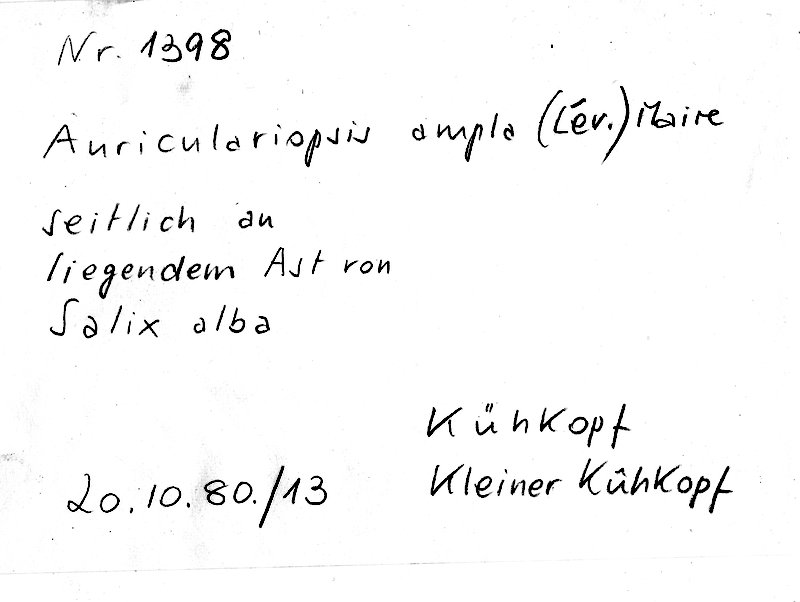 Nr. 1398
Auriculariopsis ampla (Lév.) Maire
seitlich an
liegendem Ast von
Salix alba
Kühkopf
20.10.80./13 Kleiner Kühkopf